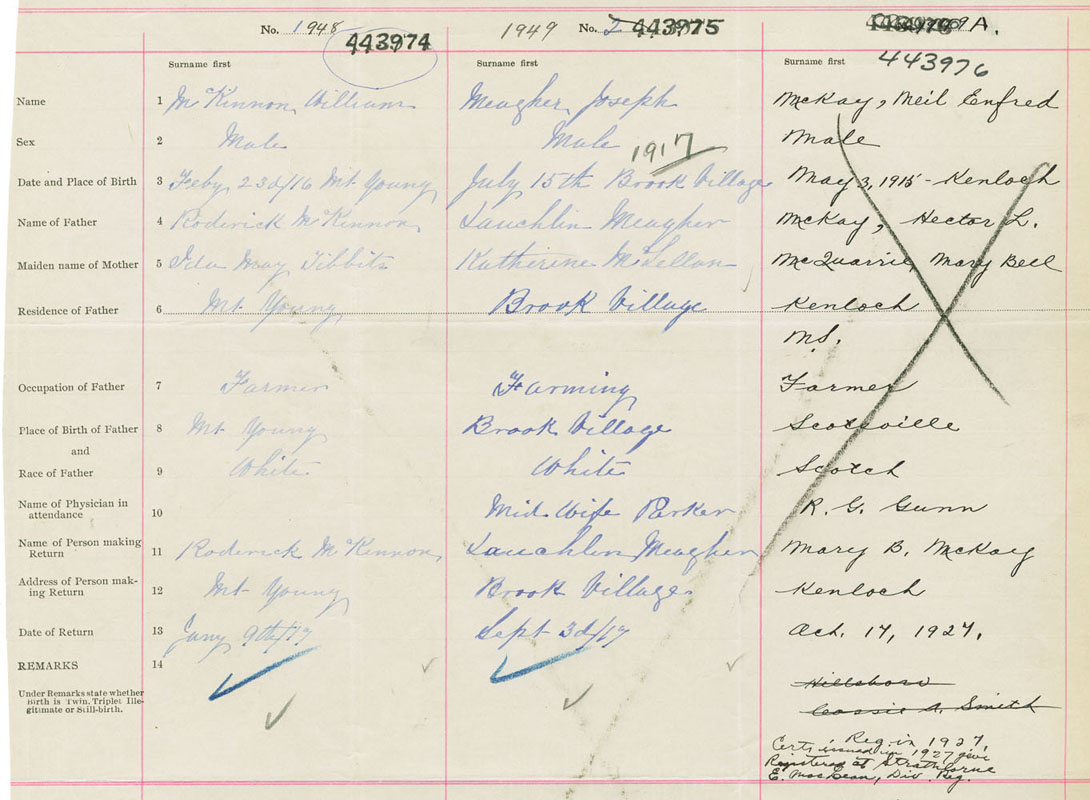 No. 1948 443974 1949 No. 2 443975 A.
443976
Surname first Surname first Surname first
Name 1 McKinnon, William Meagher, Joseph McKay, Neil Enfred
Sex 2 Male Male Male
1917
Date and Place of Birth 3 Feby 23d/16 Mt Young July 15th Brook Village May 3, 1915 - Kenloch
Name of Father 4 Roderick McKinnon Lauchlin Meagher McKay, Hector L.
Maiden name of Mother 5 Ida May Tibbits Katherine McLellan McQuarrie, Mary Bell
Residence of Father 6 Mt. Young Brook Village Kenloch
N.S.
Occupation of Father 7 Farmer Farming Farmer
Place of Birth of Father 8 Mt Young Brook Village Scotsville
and
Race of Father 9 White White Scotch
Name of Physician in
attendance 10 Mid Wife Parker R. G. Gunn
Name of Person making
Return 11 Roderick McKinnon, Lauchlin Meagher Mary B. McKay
Address of Person mak-
ing Return 12 Mt Young Brook Village Kenloch
Date of Return 13 Jany 9th/17 Sept 3d/17 Oct. 17, 1927.
REMARKS 14
Under Remarks state whether
Birth is Twin, Triplet Ille-
gitimate or Still-birth.
Hillsboro
Cassie A. Smith
Reg. in 1927,
Certs issued in 1927 give
Registered at Strathlorne
E. MacLean, Div. Reg.